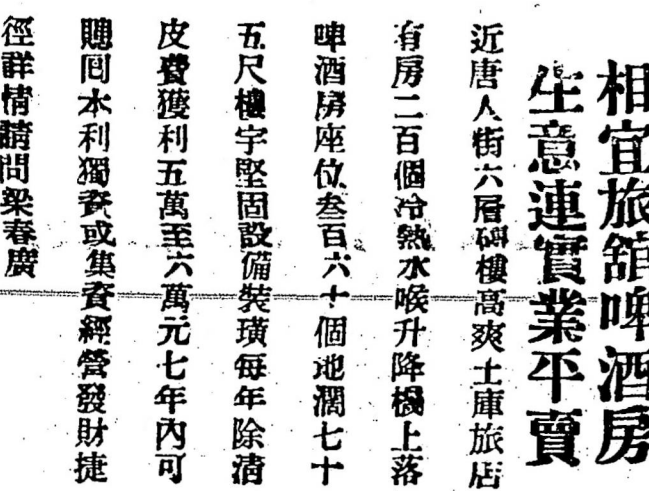 相宜旅館啤酒房
生意連實業平賣
近唐人街六層磚樓高爽土庫旅店
有房二百個冷熱水喉升降機上落
啤酒房座位叁百六十個地濶七十
五尺樓宇堅固設備裝璜每年除清
皮費獲利五萬至六萬元七年內可
賺囘本利獨資或集資經營發財捷
徑詳情請問梁春廣